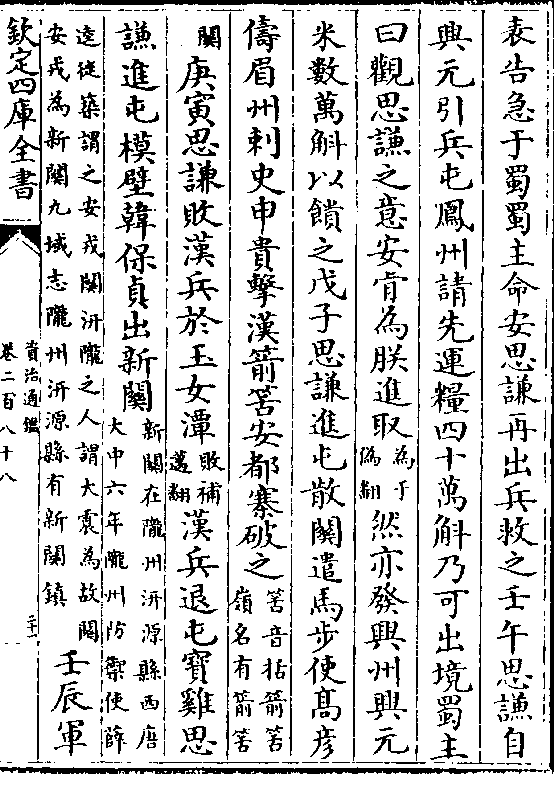 表告急于蜀蜀主命安思謙再出兵救之壬午思謙自
興元引兵屯鳳州請先運糧四十萬斛乃可出境蜀主
曰觀思謙之意安肯為朕進取為于偽翻然亦發興州興元
米數萬斛以饋之戊子思謙進屯散關遣馬步使髙彦
儔眉州刺史申貴擊漢箭筈安都寨破之筈音括箭筈嶺名有箭筈
關庚寅思謙敗漢兵於玉女潭敗補邁翻漢兵退屯寶雞思
謙進屯模壁韓保貞出新關新關在隴州汧源縣西唐大中六年隴州防禦使薛
逵徙築謂之安戎關汧隴之人謂大震為故關安戎為新關九域志隴州汧源縣有新關鎮壬辰軍
欽定四庫全書
資治通鑑
卷二百八十八